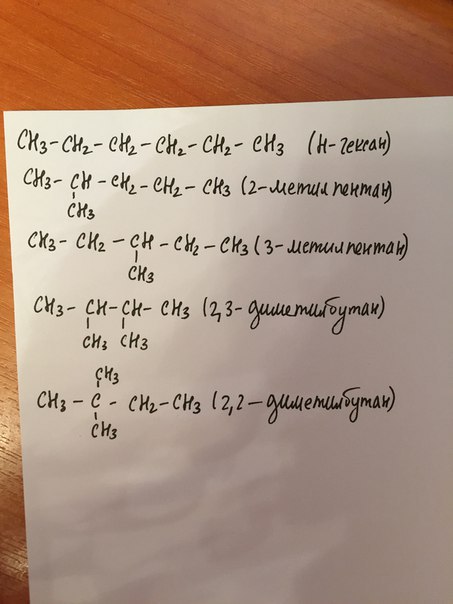 CH3-CH2-CH2-CH2-CH2-CH3 (Н-гексан)
CH3-CH-CH2-CH2-CH3 (2-метилпентан)
CH3
CH3-CH2-CH-CH2-CH3 (3-метилпентан)
CH3
CH3-CH-CH-CH3 (2,3-диметилбутан)
CH3 CH3
CH3
CH3-C-CH2-CH3 (2,2-диметилбутан)
CH3